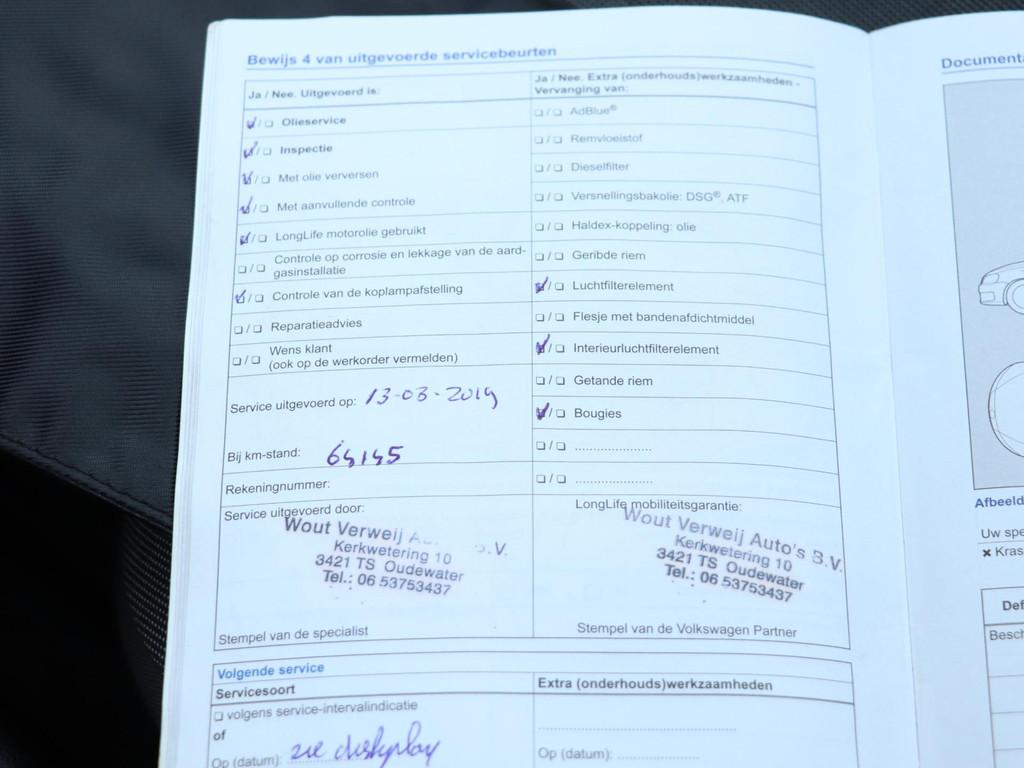 Bewijs 4 van uitgevoerde servicebeurten
Ja / Nee. Uitgevoerd is:
☑/☐ Olieservice
☑/☐ Inspectie
☑/☐ Met olie verversen
☑/☐ Met aanvullende controle
☑/☐ LongLife motorolie gebruikt
☐/☐ Controle op corrosie en lekkage van de aard-
gasinstallatie
☑/☐ Controle van de koplampafstelling
☐/☐ Reparatieadvies
☐/☐ Wens klant
(ook op de werkorder vermelden)
Service uitgevoerd op: 13-03-2019
Bij km-stand:
Rekeningnummer:
Service uitgevoerd door:
Wout Verweij A... B.V.
Kerkwetering 10
3421 TS Oudewater
Tel.: 06 53753437
Stempel van de specialist
Ja / Nee. Extra (onderhouds)werkzaamheden -
Vervanging van:
☐/☐ AdBlue®
☐/☐ Remvloeistof
☐/☐ Dieselfilter
☐/☐ Versnellingsbakolie: DSG®, ATF
☐/☐ Haldex-koppeling: olie
☐/☐ Geribde riem
☑/☐ Luchtfilterelement
☐/☐ Flesje met bandenafdichtmiddel
☑/☐ Interieurluchtfilterelement
☐/☐ Getande riem
☑/☐ Bougies
☐/☐ .....................
☐/☐ .....................
LongLife mobiliteitsgarantie:
Wout Verweij Auto's B.V.
Kerkwetering 10
3421 TS Oudewater
Tel.: 06 53753437
Stempel van de Volkswagen Partner
Volgende service
Servicesoort
☐ volgens service-intervalindicatie
of
Op (datum): zie display
Extra (onderhouds)werkzaamheden
Op (datum): .....................
Documenta
Afbeeld
Uw spe
✖ Kras
Def
Besch